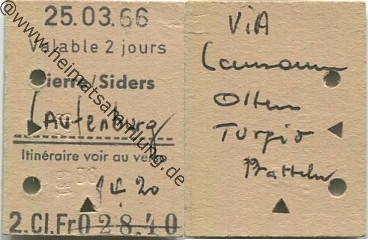 25.03.66
Valable 2 jours
Sierre/Siders
Laufenburg
Itinéraire voir au verso
14.20
2.Cl.Fr 028.40
www.heimatsammlung.de
VIA
Lausanne
Olten
Turgi
Pratteln